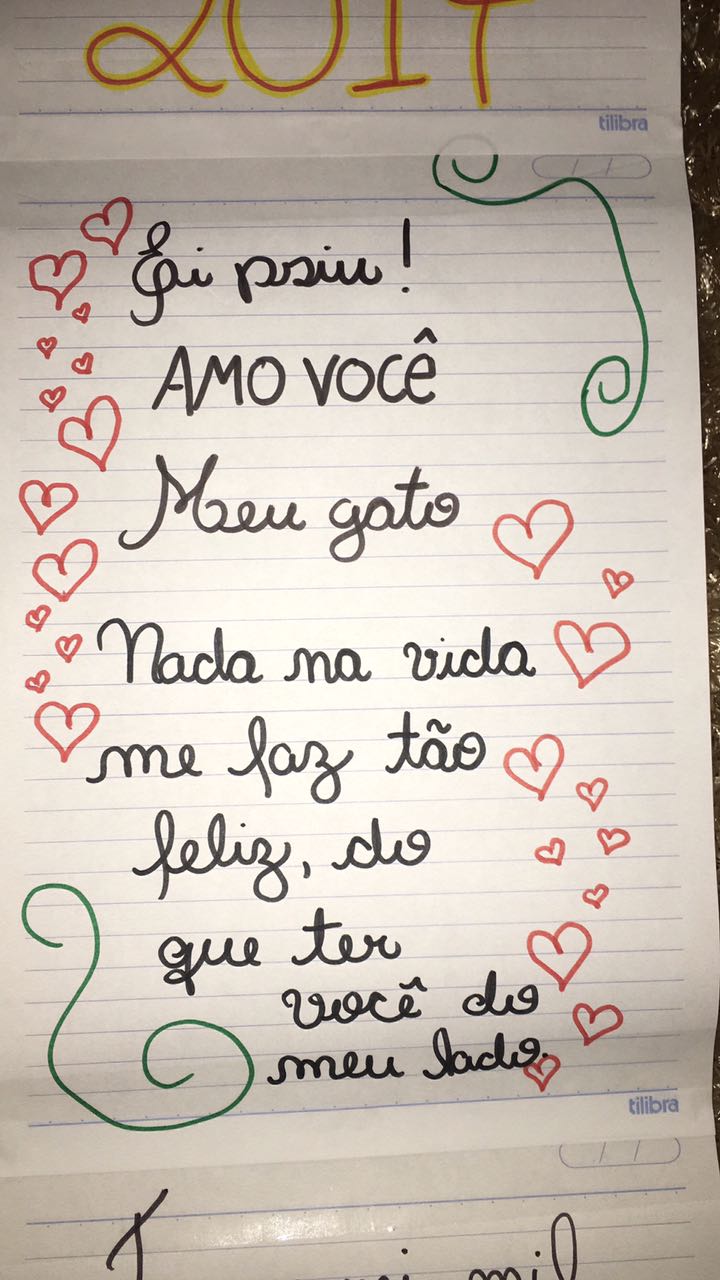 2017
tilibra
Ei psiu!
AMO VOCÊ
Meu gato
Nada na vida
me faz tão
feliz, do
que ter
você do
meu lado.
tilibra
mil